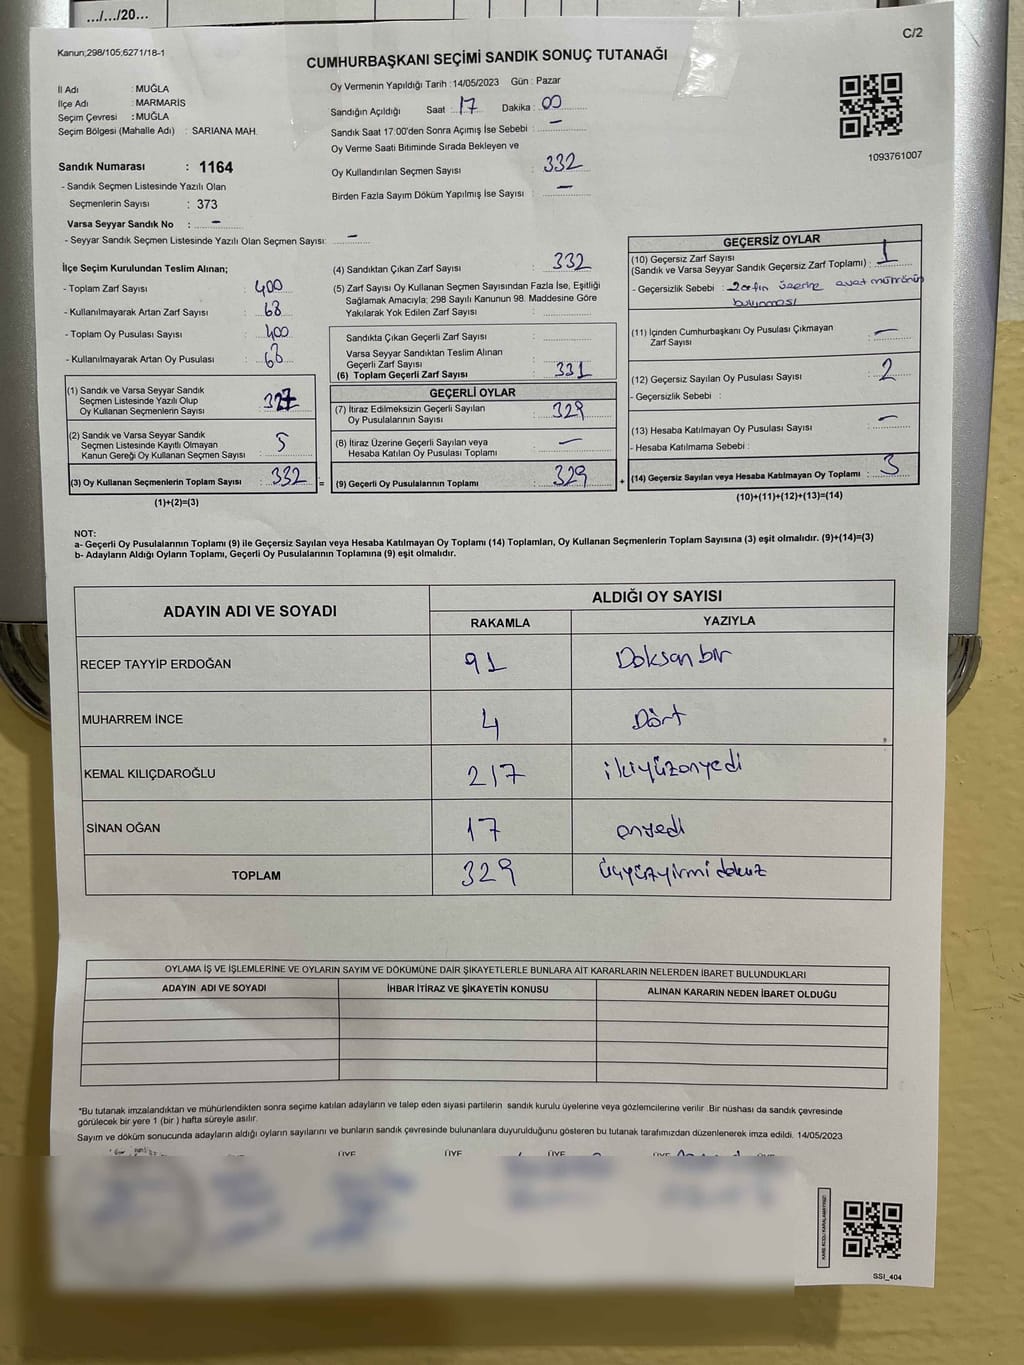 .../.../20...
C/2
Kanun;298/105;6271/18-1
CUMHURBAŞKANI SEÇİMİ SANDIK SONUÇ TUTANAĞI
İl Adı : MUĞLA
İlçe Adı : MARMARİS
Seçim Çevresi : MUĞLA
Seçim Bölgesi (Mahalle Adı) : SARIANA MAH.
Sandık Numarası : 1164
- Sandık Seçmen Listesinde Yazılı Olan
Seçmenlerin Sayısı : 373
Varsa Seyyar Sandık No : -
- Seyyar Sandık Seçmen Listesinde Yazılı Olan Seçmen Sayısı: -
Oy Vermenin Yapıldığı Tarih : 14/05/2023 Gün : Pazar
Sandığın Açıldığı Saat : 17 Dakika : 00
Sandık Saat 17:00'den Sonra Açımış İse Sebebi : -
Oy Verme Saati Bitiminde Sırada Bekleyen ve
Oy Kullandırılan Seçmen Sayısı : 332
Birden Fazla Sayım Döküm Yapılmış İse Sayısı : -
1093761007
İlçe Seçim Kurulundan Teslim Alınan;
- Toplam Zarf Sayısı : 400
- Kullanılmayarak Artan Zarf Sayısı : 68
- Toplam Oy Pusulası Sayısı : 400
- Kullanılmayarak Artan Oy Pusulası : 68
(1) Sandık ve Varsa Seyyar Sandık
Seçmen Listesinde Yazılı Olup
Oy Kullanan Seçmenlerin Sayısı : 327
(2) Sandık ve Varsa Seyyar Sandık
Seçmen Listesinde Kayıtlı Olmayan
Kanun Gereği Oy Kullanan Seçmen Sayısı : 5
(3) Oy Kullanan Seçmenlerin Toplam Sayısı : 332 =
(1)+(2)=(3)
(4) Sandıktan Çıkan Zarf Sayısı : 332
(5) Zarf Sayısı Oy Kullanan Seçmen Sayısından Fazla İse, Eşitliği
Sağlamak Amacıyla; 298 Sayılı Kanunun 98. Maddesine Göre
Yakılarak Yok Edilen Zarf Sayısı :
Sandıkta Çıkan Geçerli Zarf Sayısı :
Varsa Seyyar Sandıktan Teslim Alınan
Geçerli Zarf Sayısı :
(6) Toplam Geçerli Zarf Sayısı : 331
GEÇERLİ OYLAR
(7) İtiraz Edilmeksizin Geçerli Sayılan
Oy Pusulalarının Sayısı : 329
(8) İtiraz Üzerine Geçerli Sayılan veya
Hesaba Katılan Oy Pusulası Toplamı : -
(9) Geçerli Oy Pusulalarının Toplamı : 329 +
GEÇERSİZ OYLAR
(10) Geçersiz Zarf Sayısı
(Sandık ve Varsa Seyyar Sandık Geçersiz Zarf Toplamı) : 1
- Geçersizlik Sebebi : Zarfın üzerine evet mührünün
bulunması
(11) İçinden Cumhurbaşkanı Oy Pusulası Çıkmayan
Zarf Sayısı : -
(12) Geçersiz Sayılan Oy Pusulası Sayısı : 2
- Geçersizlik Sebebi :
(13) Hesaba Katılmayan Oy Pusulası Sayısı : -
- Hesaba Katılmama Sebebi :
(14) Geçersiz Sayılan veya Hesaba Katılmayan Oy Toplamı : 3
(10)+(11)+(12)+(13)=(14)
NOT:
a- Geçerli Oy Pusulalarının Toplamı (9) ile Geçersiz Sayılan veya Hesaba Katılmayan Oy Toplamı (14) Toplamları, Oy Kullanan Seçmenlerin Toplam Sayısına (3) eşit olmalıdır. (9)+(14)=(3)
b- Adayların Aldığı Oyların Toplamı, Geçerli Oy Pusulalarının Toplamına (9) eşit olmalıdır.
ADAYIN ADI VE SOYADI ALDIĞI OY SAYISI
RAKAMLA YAZIYLA
RECEP TAYYİP ERDOĞAN 91 Doksan bir
MUHARREM İNCE 4 Dört
KEMAL KILIÇDAROĞLU 217 ikiyüzonyedi
SİNAN OĞAN 17 onyedi
TOPLAM 329 üçyüzyirmi dokuz
OYLAMA İŞ VE İŞLEMLERİNE VE OYLARIN SAYIM VE DÖKÜMÜNE DAİR ŞİKAYETLERLE BUNLARA AİT KARARLARIN NELERDEN İBARET BULUNDUKLARI
ADAYIN ADI VE SOYADI İHBAR İTİRAZ VE ŞİKAYETİN KONUSU ALINAN KARARIN NEDEN İBARET OLDUĞU
*Bu tutanak imzalandıktan ve mühürlendikten sonra seçime katılan adayların ve talep eden siyasi partilerin sandık kurulu üyelerine veya gözlemcilerine verilir .Bir nüshası da sandık çevresinde
görülecek bir yere 1 (bir ) hafta süreyle asılır.
Sayım ve döküm sonucunda adayların aldığı oyların sayılarını ve bunların sandık çevresinde bulunanlara duyurulduğunu gösteren bu tutanak tarafımızdan düzenlenerek imza edildi. 14/05/2023
ÜYE ÜYE ÜYE ÜYE ÜYE
SSI_404